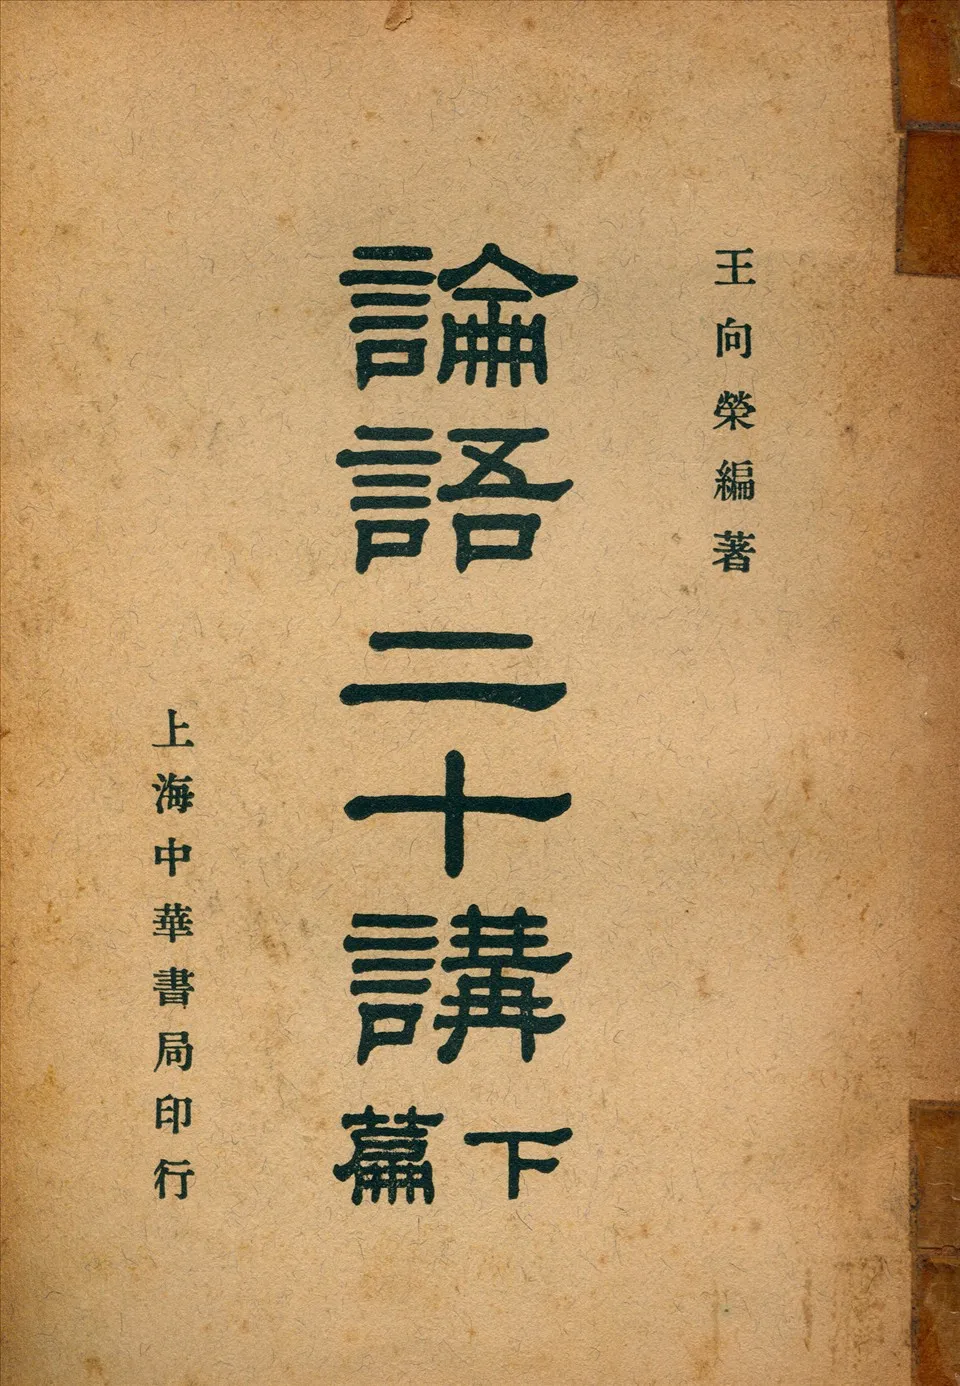 王向榮編著
論語二十講 下篇
上海中華書局印行